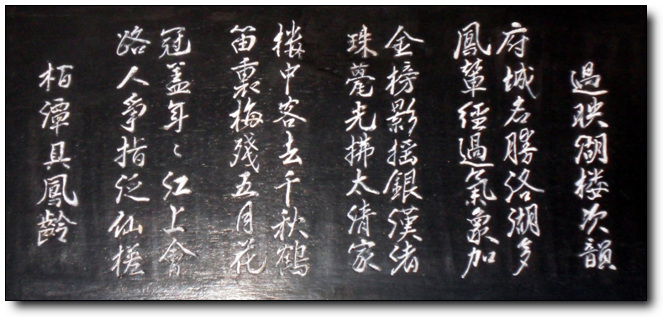 過映湖楼次韻
府城名勝洛湖多
鳳輦經過氣象加
金榜影搖銀漢渚
珠甍光拂太清家
樓中客去千秋鶴
笛裏梅殘五月花
冠盖年〻江上會
路人爭指泛仙槎
栢潭具鳳齡